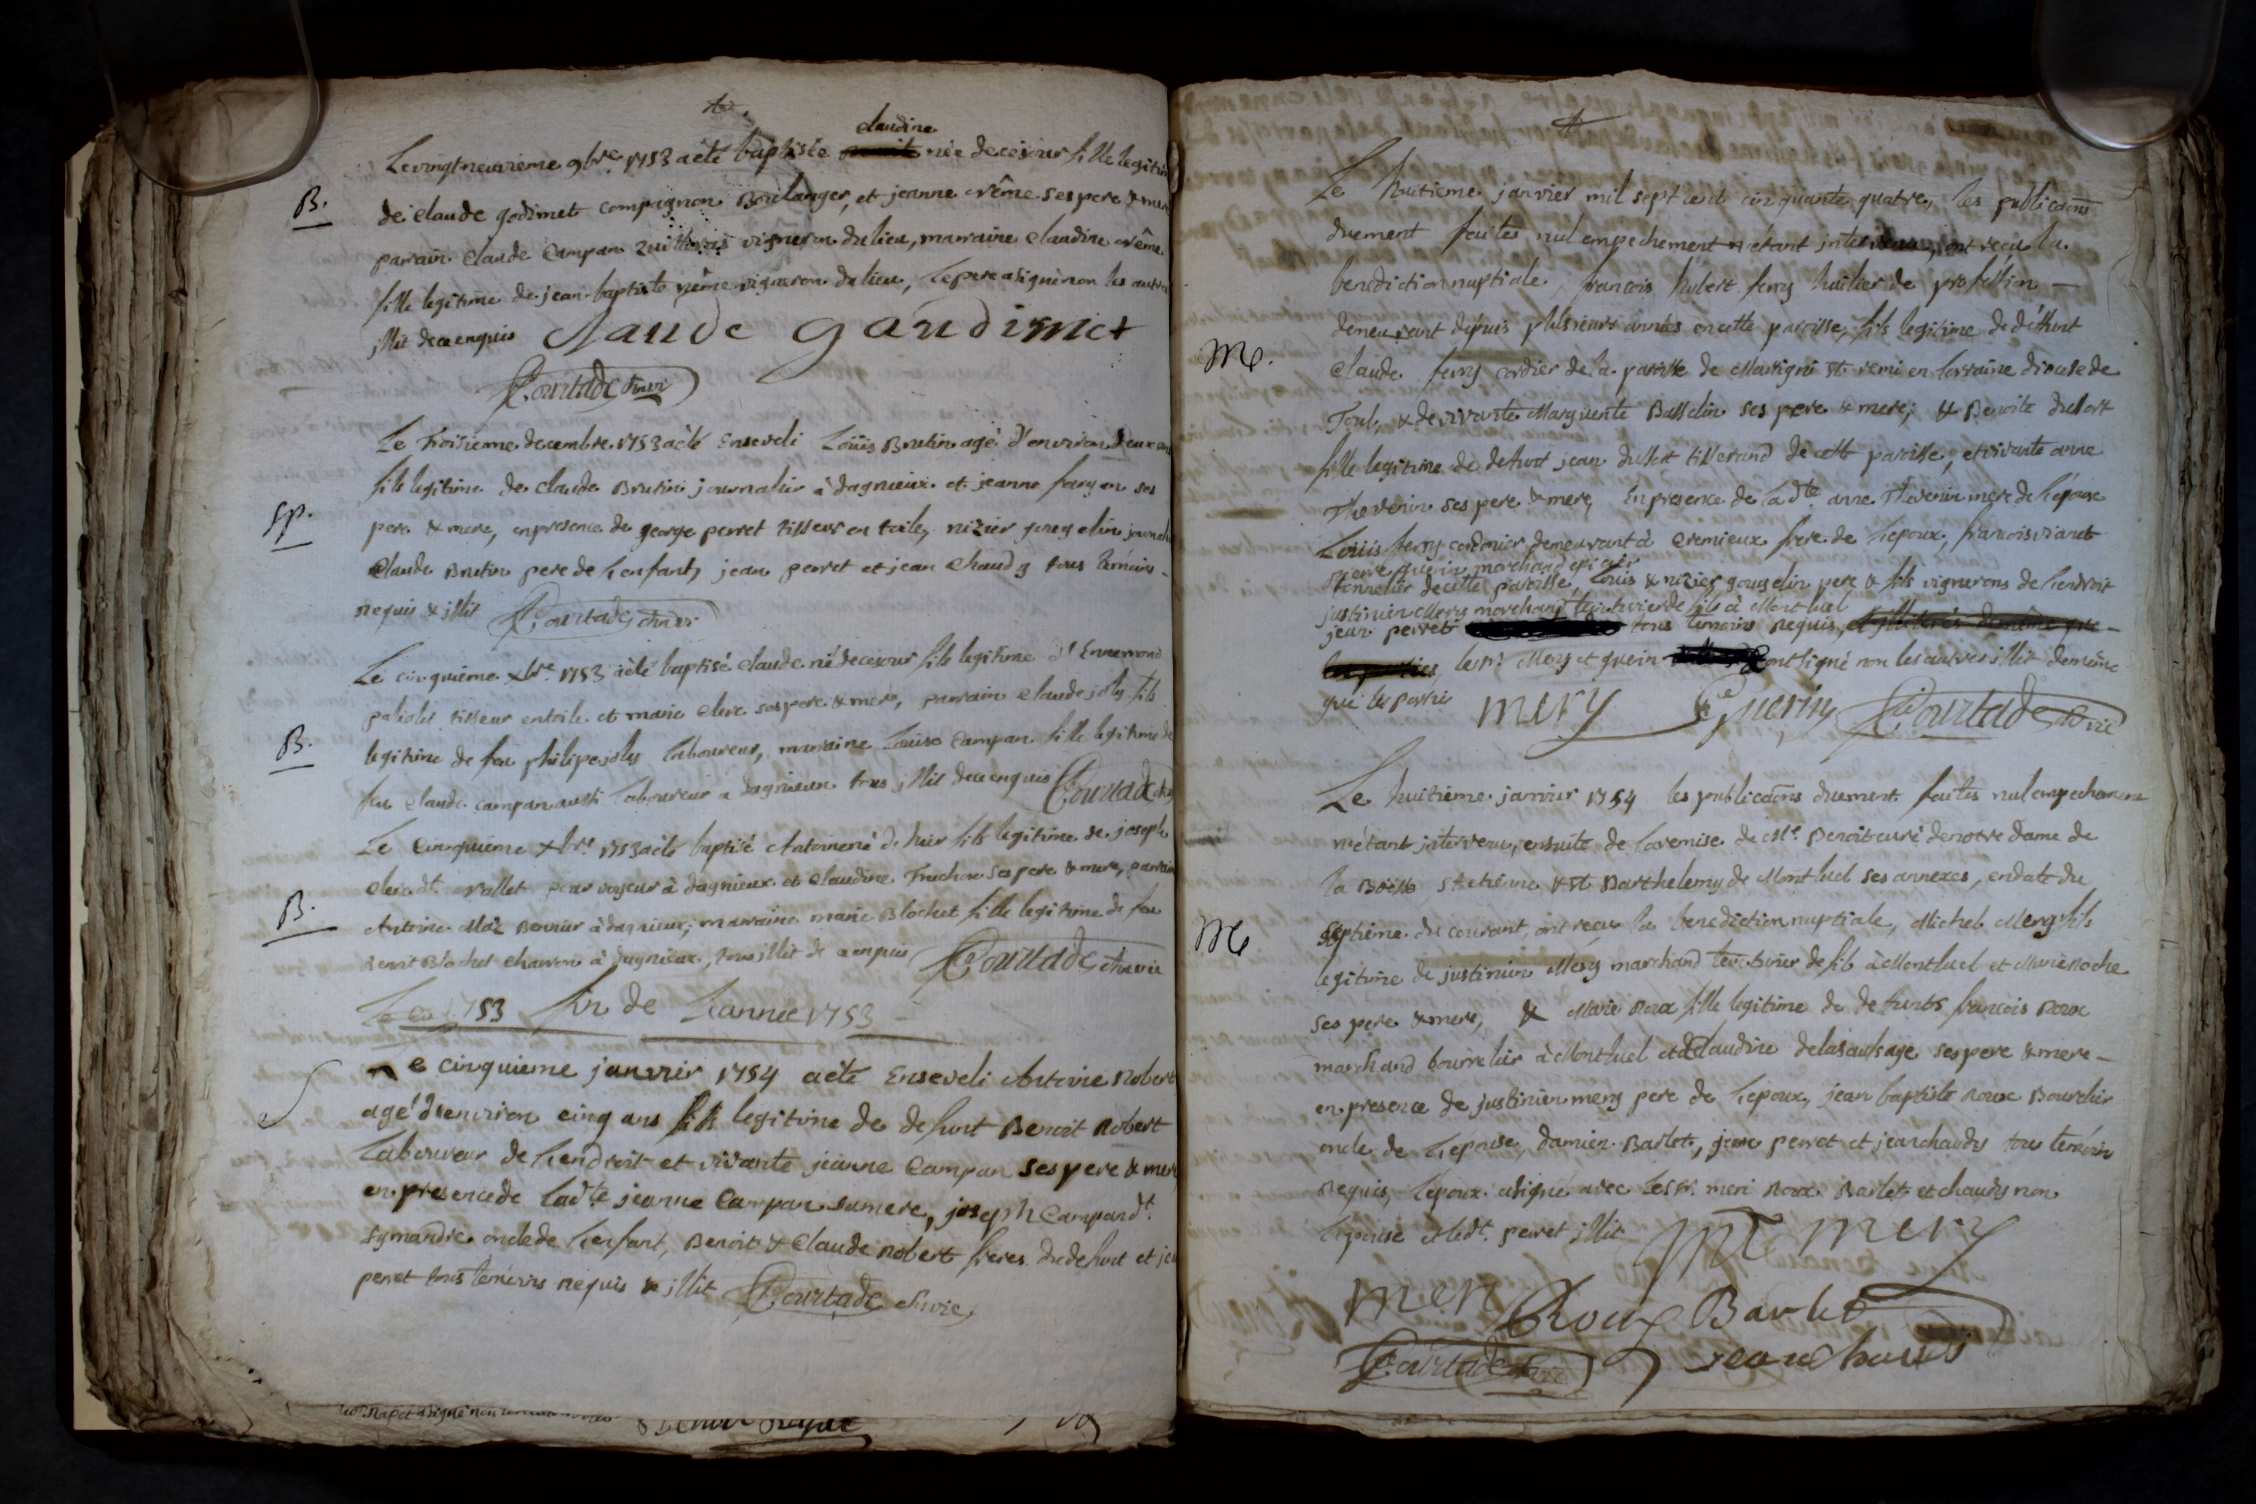 claudine
Le vingt neuvieme 9bre 1753 a été baptisée née de ce jour fille legitime
B.
de claude godimet compagnon Boulanger, et jeanne crême ses pere & mere
parrain claude Campan vigneron du lieu, marraine claudine crême
fille legitime de jean baptiste crême vigneron du lieu, le pere a signé non les autres
illit de ce enquis Claude gaudimet
Courtade curé
Le troisieme decembre 1753 a été Enseveli Loüis Brutin agé d'environ deux ans
fils legitime de claude Brutin journalier à dagnieux et jeanne ses
Sp.
pere & mere, en presence de george perret tisseur en toile, nizier gougelin journalier
Claude Brutin pere de l'enfant, jean perret et jean Chaudy tous témoins
requis & illit Courtade
Le cinquieme xbre 1753 a été baptisé claude né de ce jour fils legitime d'Ennemond
tisseur en toile et marie clerc ses pere & mere, parrain claude joly fils
B.
legitime de feu philipe joly laboureur, marraine Louise Campan fille legitime de
feu claude campan aussi laboureur a dagnieux tous illit de ce enquis Courtade
Le Cinquieme xbre 1753 a été baptisé Antoine né d'hier fils legitime de joseph
clerc dt vallet pour voyeur à dagnieux et claudine ses pere & mere, parrain
B.
Antoine à dagnieux, marraine marie Blochet fille legitime de feu
Benoit Blochet charron à dagnieux, tous illit de ce enquis Courtade
1753 fin de l'année 1753
Le cinquieme janvier 1754 a été Enseveli Antoine Robert
S
agé d'environ cinq ans fils legitime de defunt Benoit Robert
Laboureur de l'endroit et vivante jeanne Campan ses pere & mere
en presence de ladte jeanne Campan sa mere, joseph Campan dt
symandre oncle de l'enfant, Benoit & Claude Robert freres du defunt et jean
perret tous témoins requis & illit Courtade
Le huitieme janvier mil sept cent cinquante quatre, les publicaons
duement faites nul empechement n'étant intervenu, ont reçu la
benediction nuptiale, francois hubert ferry huilier de profession
demeurant depuis plusieurs années en cette paroisse, fils legitime de défunt
M.
claude ferry cordier de la paroisse de st remi en lorraine diocese de
Toul, & de vivante Marguerite Basselin ses pere & mere; & Benoite dufort
fille legitime de defunt jean dufort tisserand de cette paroisse, et vivante anne
Thevenin ses pere & mere, En presence de ladte anne Thevenin mere de l'épouse
Loüis ferry cordonier demeurant à Cremieux frere de l'epoux, francois viand
pierre guerin marchand epicier
tonnelier de cette paroisse, Loüis & nizier gougelin pere & fils vignerons de l'endroit
justinien Mery marchand de fils à Montluel
jean perret tous temoins requis, et illiterés de même que
les parties les srs Mery et guerin ont signé non les autres illit de même
que les parties mery Guerin Courtade
Le huitieme janvier 1754 les publicaons duement faites nul empechement
n'étant intervenu, ensuite de la remise de Mre Benoit curé de notre dame de
la Boisse, st etienne & st Barthelemy de Montluel ses annexes, en date du
M
septieme du courant, ont reçu la benediction nuptiale, Michel Mery fils
legitime de justinien Mery marchand de fils à Montluel et Marie Roche
ses pere & mere, & Marie Roux fille legitime de defunts francois Roux
marchand bourrelier à Montluel et de Claudine delasausage ses pere & mere
en presence de justinien mery pere de l'epoux, jean baptiste Roux Bourrelier
oncle de l'epouse, damien Barlet, jean perret et jean chaudy tous temoins
requis, l'epoux a signé avec les srs meri Roux Barlet et chaudy non
l'epouse & ledt perret illit M mery
mery Roux Barlet
Courtade jean chaudi